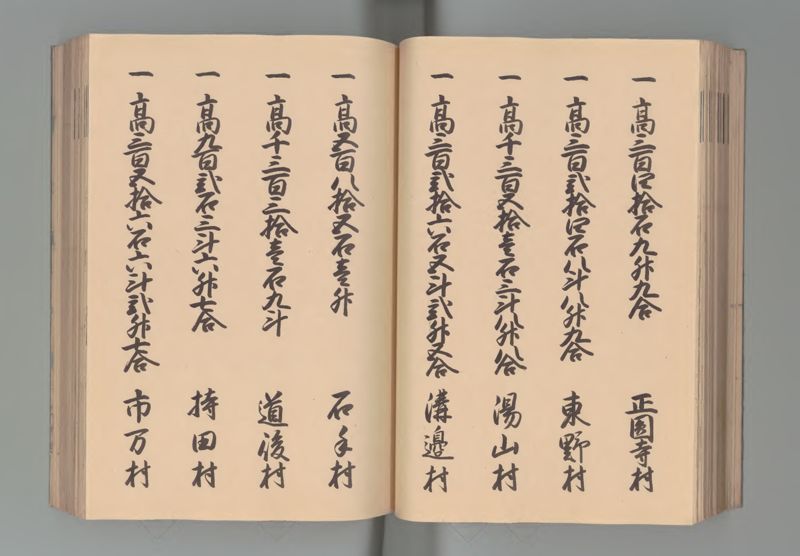 一 高三百四拾石九升九合 正圓寺村
一 高三百弐拾四石八斗八升九合 東野村
一 高千三百五拾壱石三斗八升八合 湯山村
一 高三百弐拾六石五斗弐升五合 溝邊村
一 高五百八拾五石壱升 石手村
一 高千三百三拾壱石九斗 道後村
一 高九百弐石三斗六升七合 持田村
一 高三百五拾六石六斗弐升七合 市万村